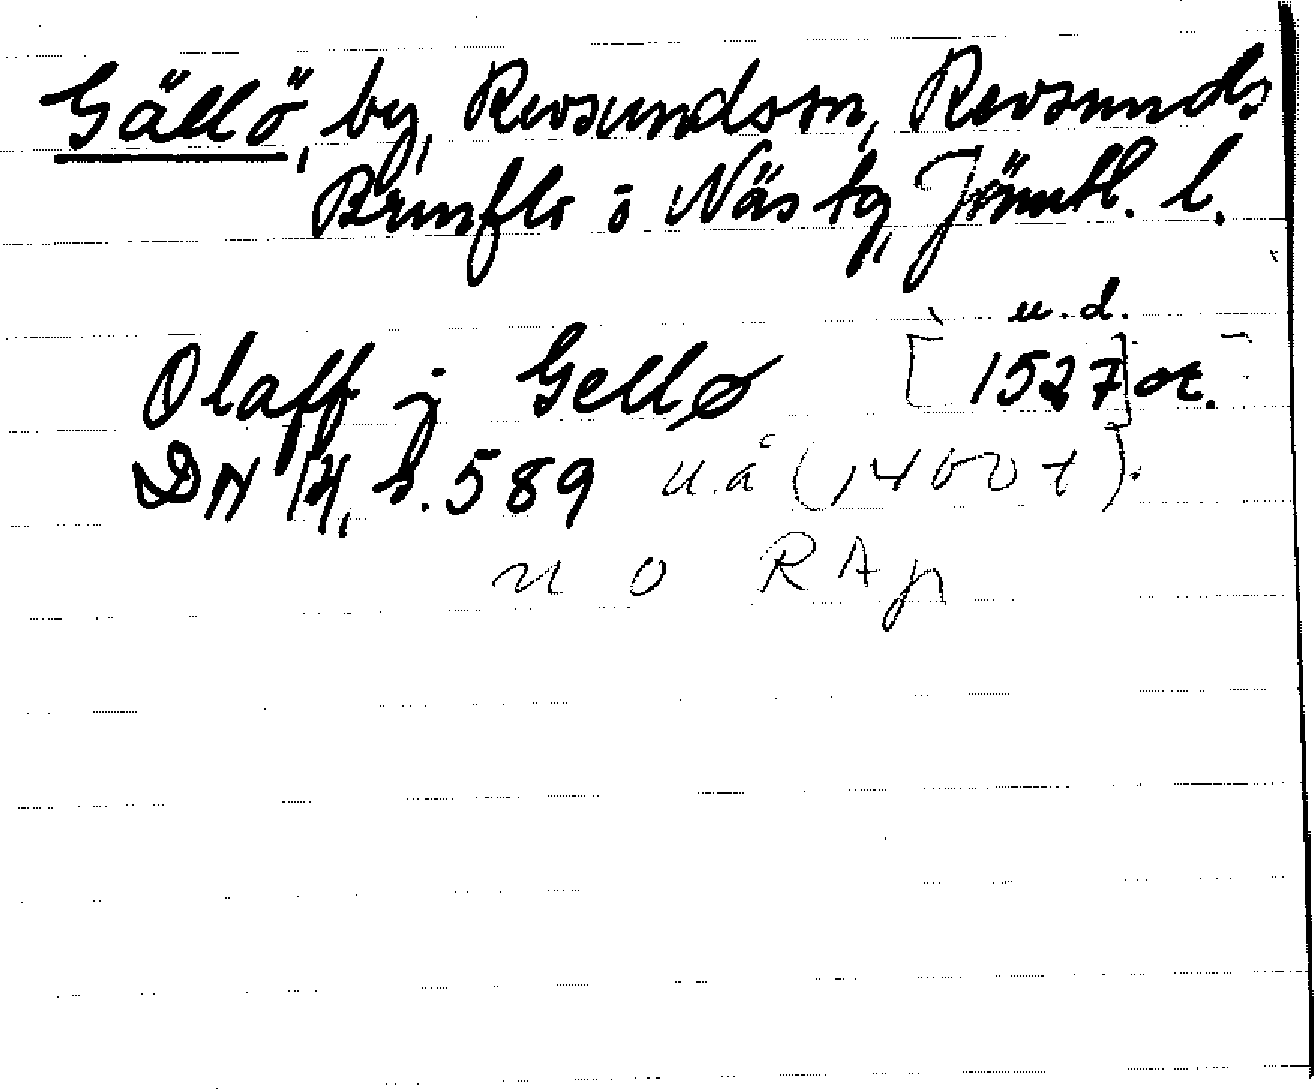 Gällö, by, Revsundssn, Revsunds
Brunflo o Näs tg, Jämtl. l.
u.d.
Olaff j Gellø [1527] or.
DN 14, s. 589 u.å (1400 t).
n o RAp